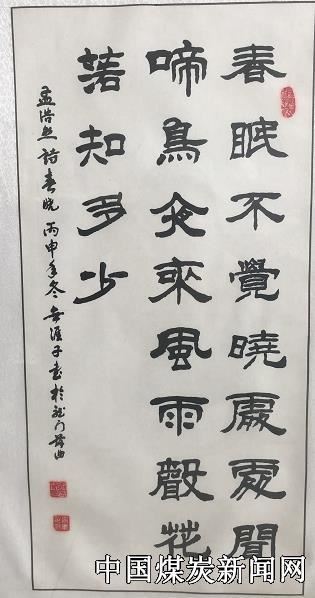 春眠不覺曉處處聞
啼鳥夜來風雨聲花
落知多少
孟浩然詩春曉丙申年冬無涯子書於龍門
中国煤炭新闻网